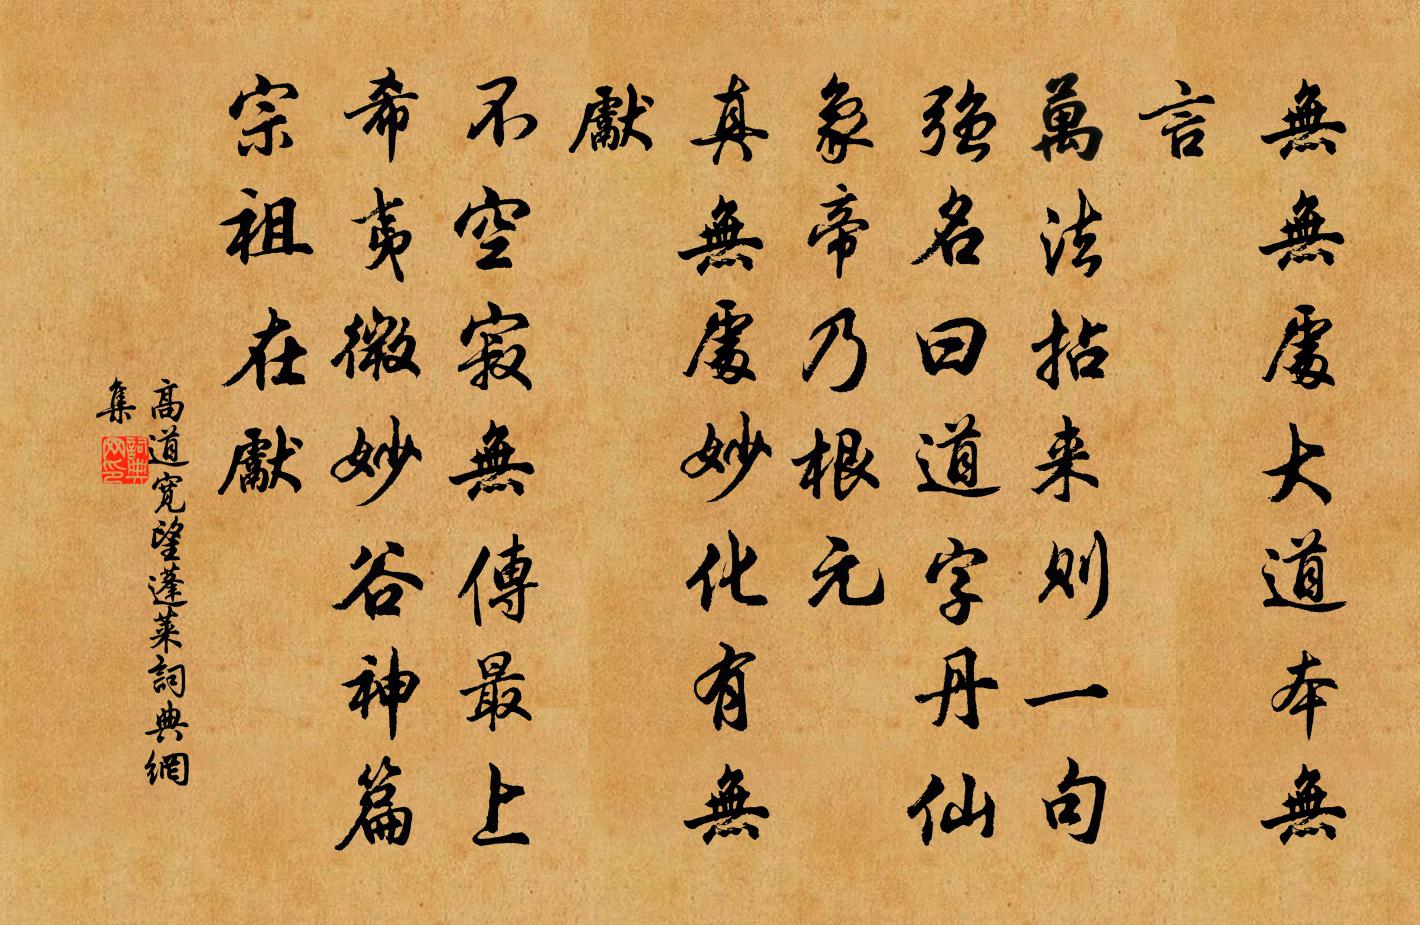 無無處大道本無
言
萬法拈来則一句
強名曰道字丹仙
象帝乃根元
真無處妙化有無
獻
不空寂無傳最上
希夷微妙谷神篇
宗祖在獻
高道寬望蓬莱詞典網
集